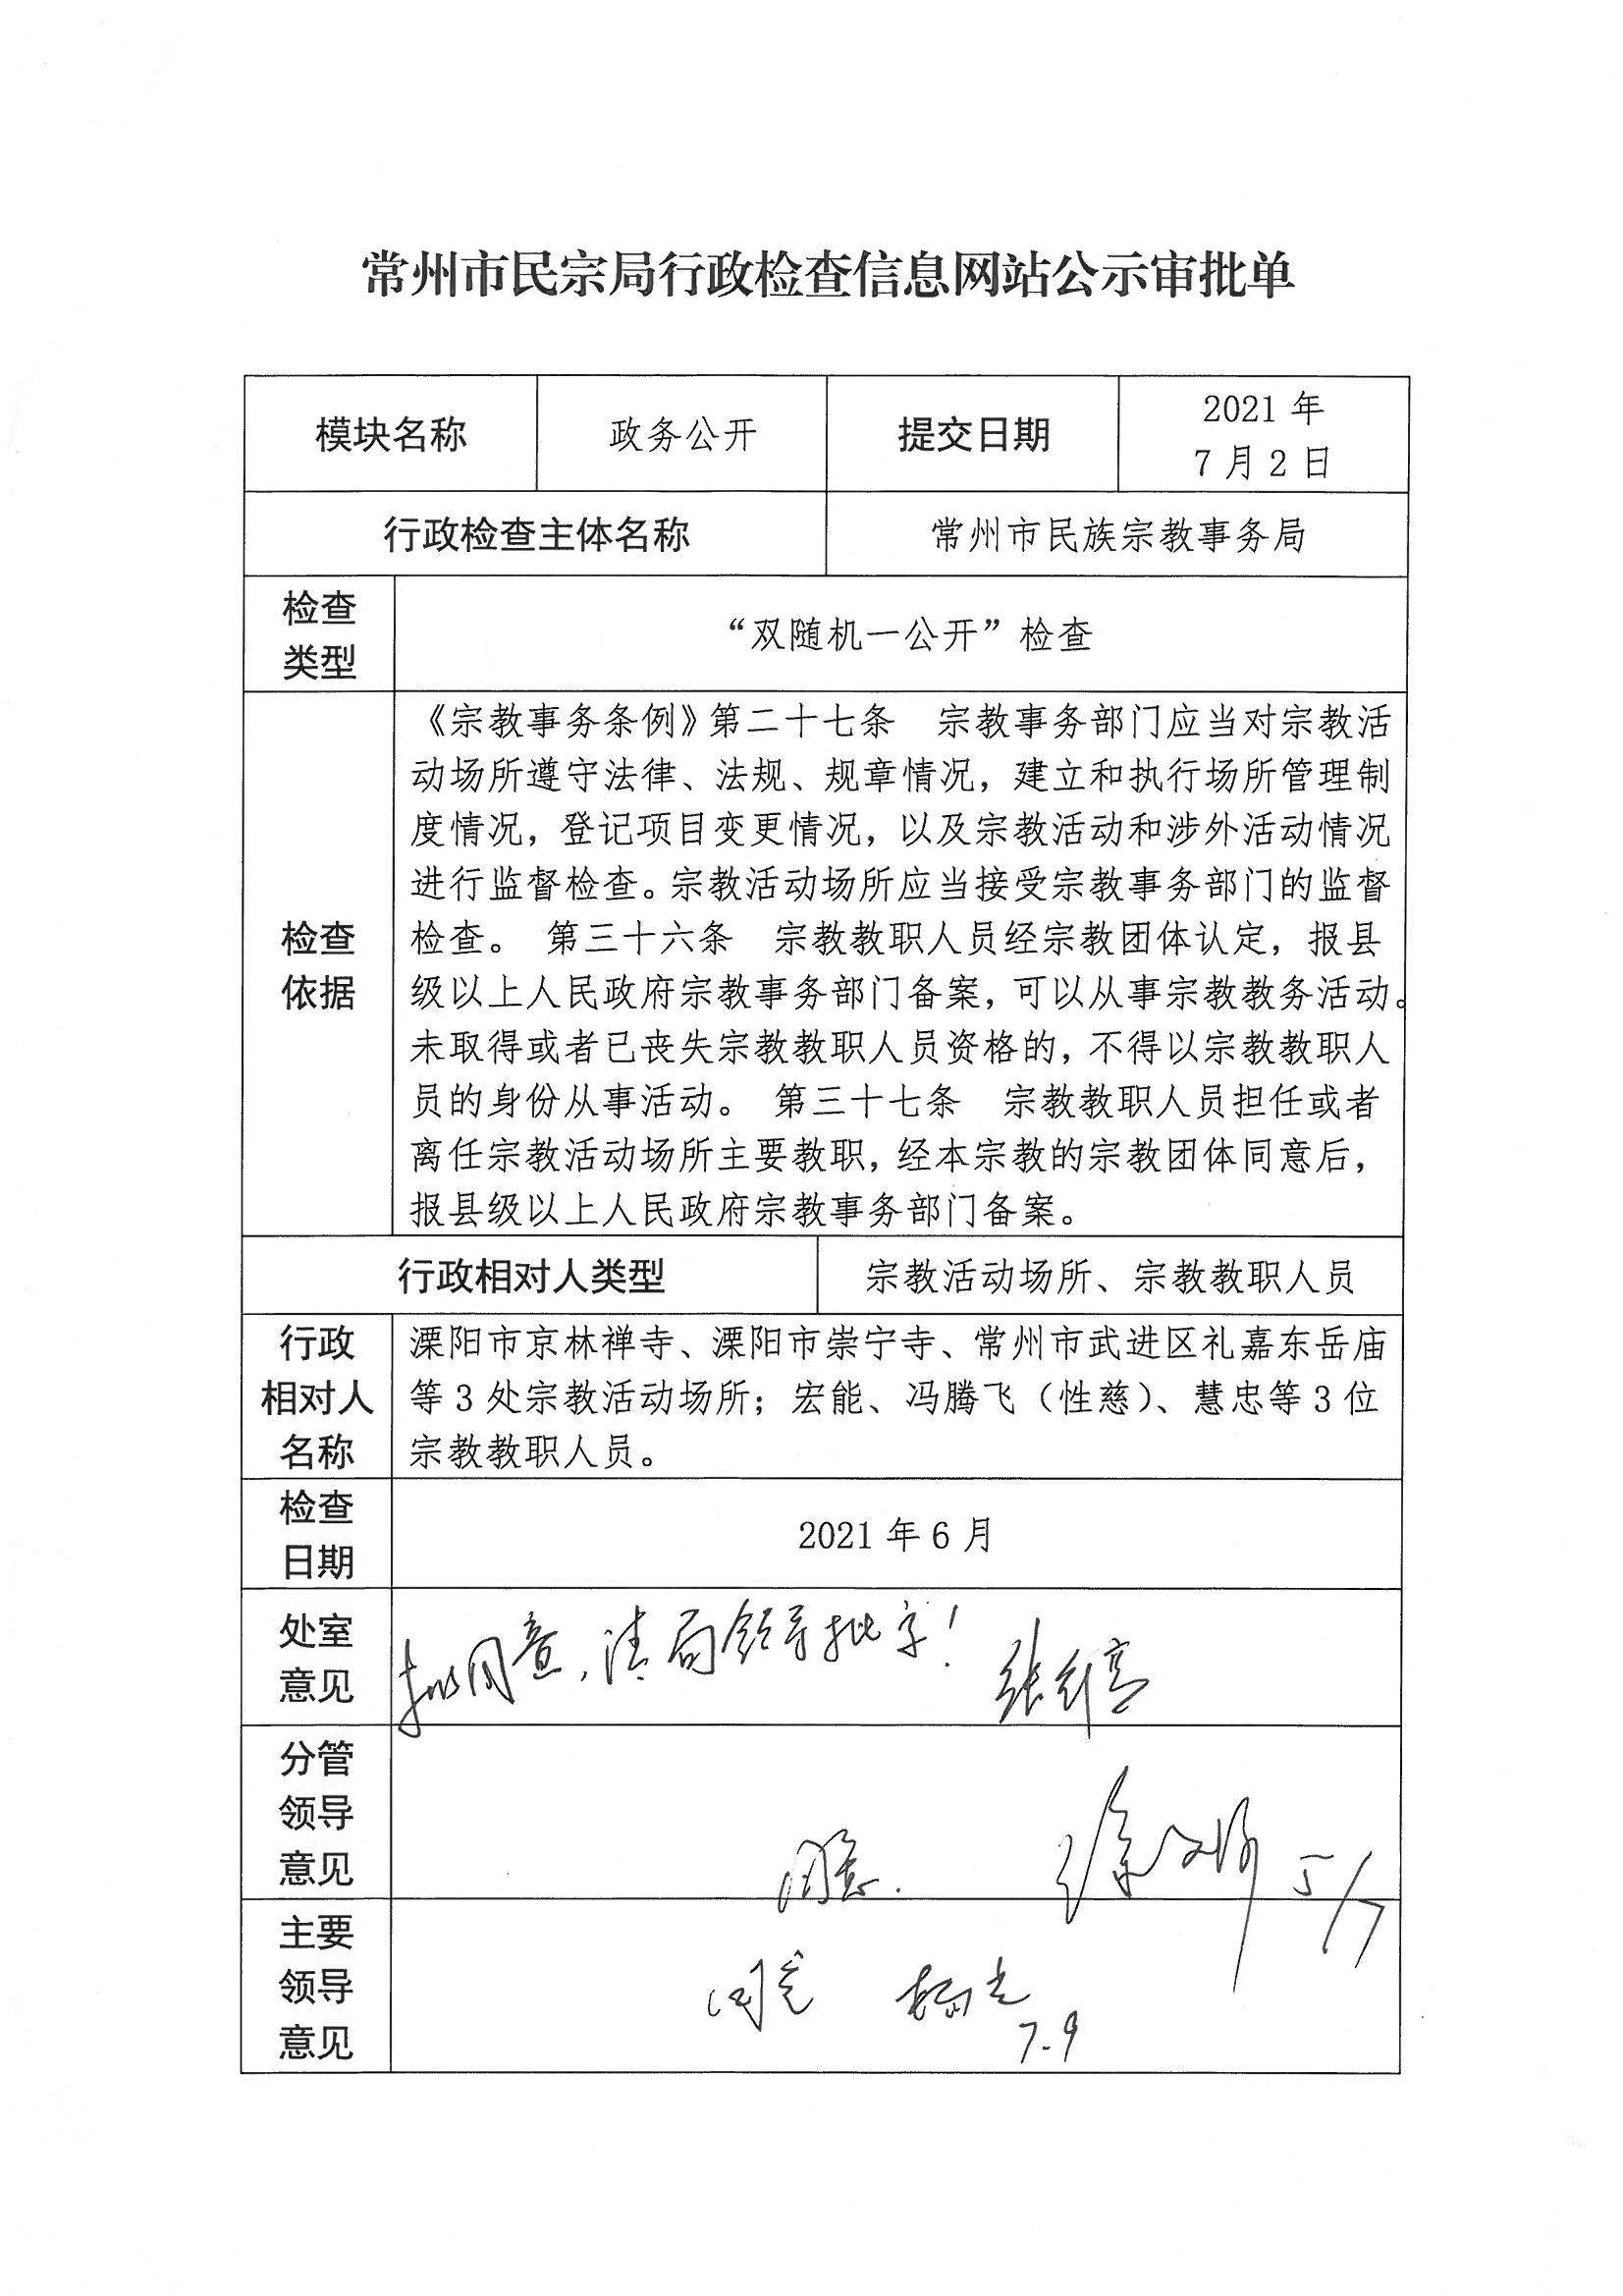 常州市民宗局行政检查信息网站公示审批单
模块名称 政务公开 提交日期 2021 年
7 月 2 日
行政检查主体名称 常州市民族宗教事务局
检查
类型
“双随机一公开”检查
检查
依据
《宗教事务条例》第二十七条 宗教事务部门应当对宗教活
动场所遵守法律、法规、规章情况，建立和执行场所管理制
度情况，登记项目变更情况，以及宗教活动和涉外活动情况
进行监督检查。宗教活动场所应当接受宗教事务部门的监督
检查。 第三十六条 宗教教职人员经宗教团体认定，报县
级以上人民政府宗教事务部门备案，可以从事宗教教务活动。
未取得或者已丧失宗教教职人员资格的，不得以宗教教职人
员的身份从事活动。 第三十七条 宗教教职人员担任或者
离任宗教活动场所主要教职，经本宗教的宗教团体同意后，
报县级以上人民政府宗教事务部门备案。
行政相对人类型 宗教活动场所、宗教教职人员
行政
相对人
名称
溧阳市京林禅寺、溧阳市崇宁寺、常州市武进区礼嘉东岳庙
等 3 处宗教活动场所；宏能、冯腾飞（性慈）、慧忠等 3 位
宗教教职人员。
检查
日期
2021 年 6 月
处室
意见
拟同意，请局领导批字！
分管
领导
意见
同意. 5/7
主要
领导
意见
同意
7-9